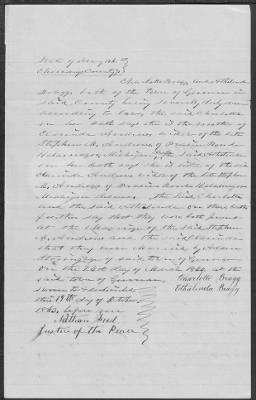 State of New York
Chenango County
Charlotte Bragg and Ethalinda
Bragg both of the Town of German in
said County being severally duly sworn
according to law, the said Charlotte
on her oath says she is the mother of
Andrews widow of the late
Stephen M. Andrews of Prairie Ronde
Kalamazoo, Michigan, and the said Ethalinda
on her oath says she is sister of the said
Andrews widow of the late Stephen
M. Andrews of Prairie Ronde Kalamazoo
Michigan the said Charlotte
and the said Ethalinda on their oaths
further say that they were both present
at the marriage of the said Stephen
M. Andrews and the said
that they were married by
of said town of German
on the 24th day of March 1844 at the
said town of German
Sworn to & subscribed Charlotte Bragg
this 19th day of October Ethalinda Bragg
1863, before me
Nathan
Justice of the Peace